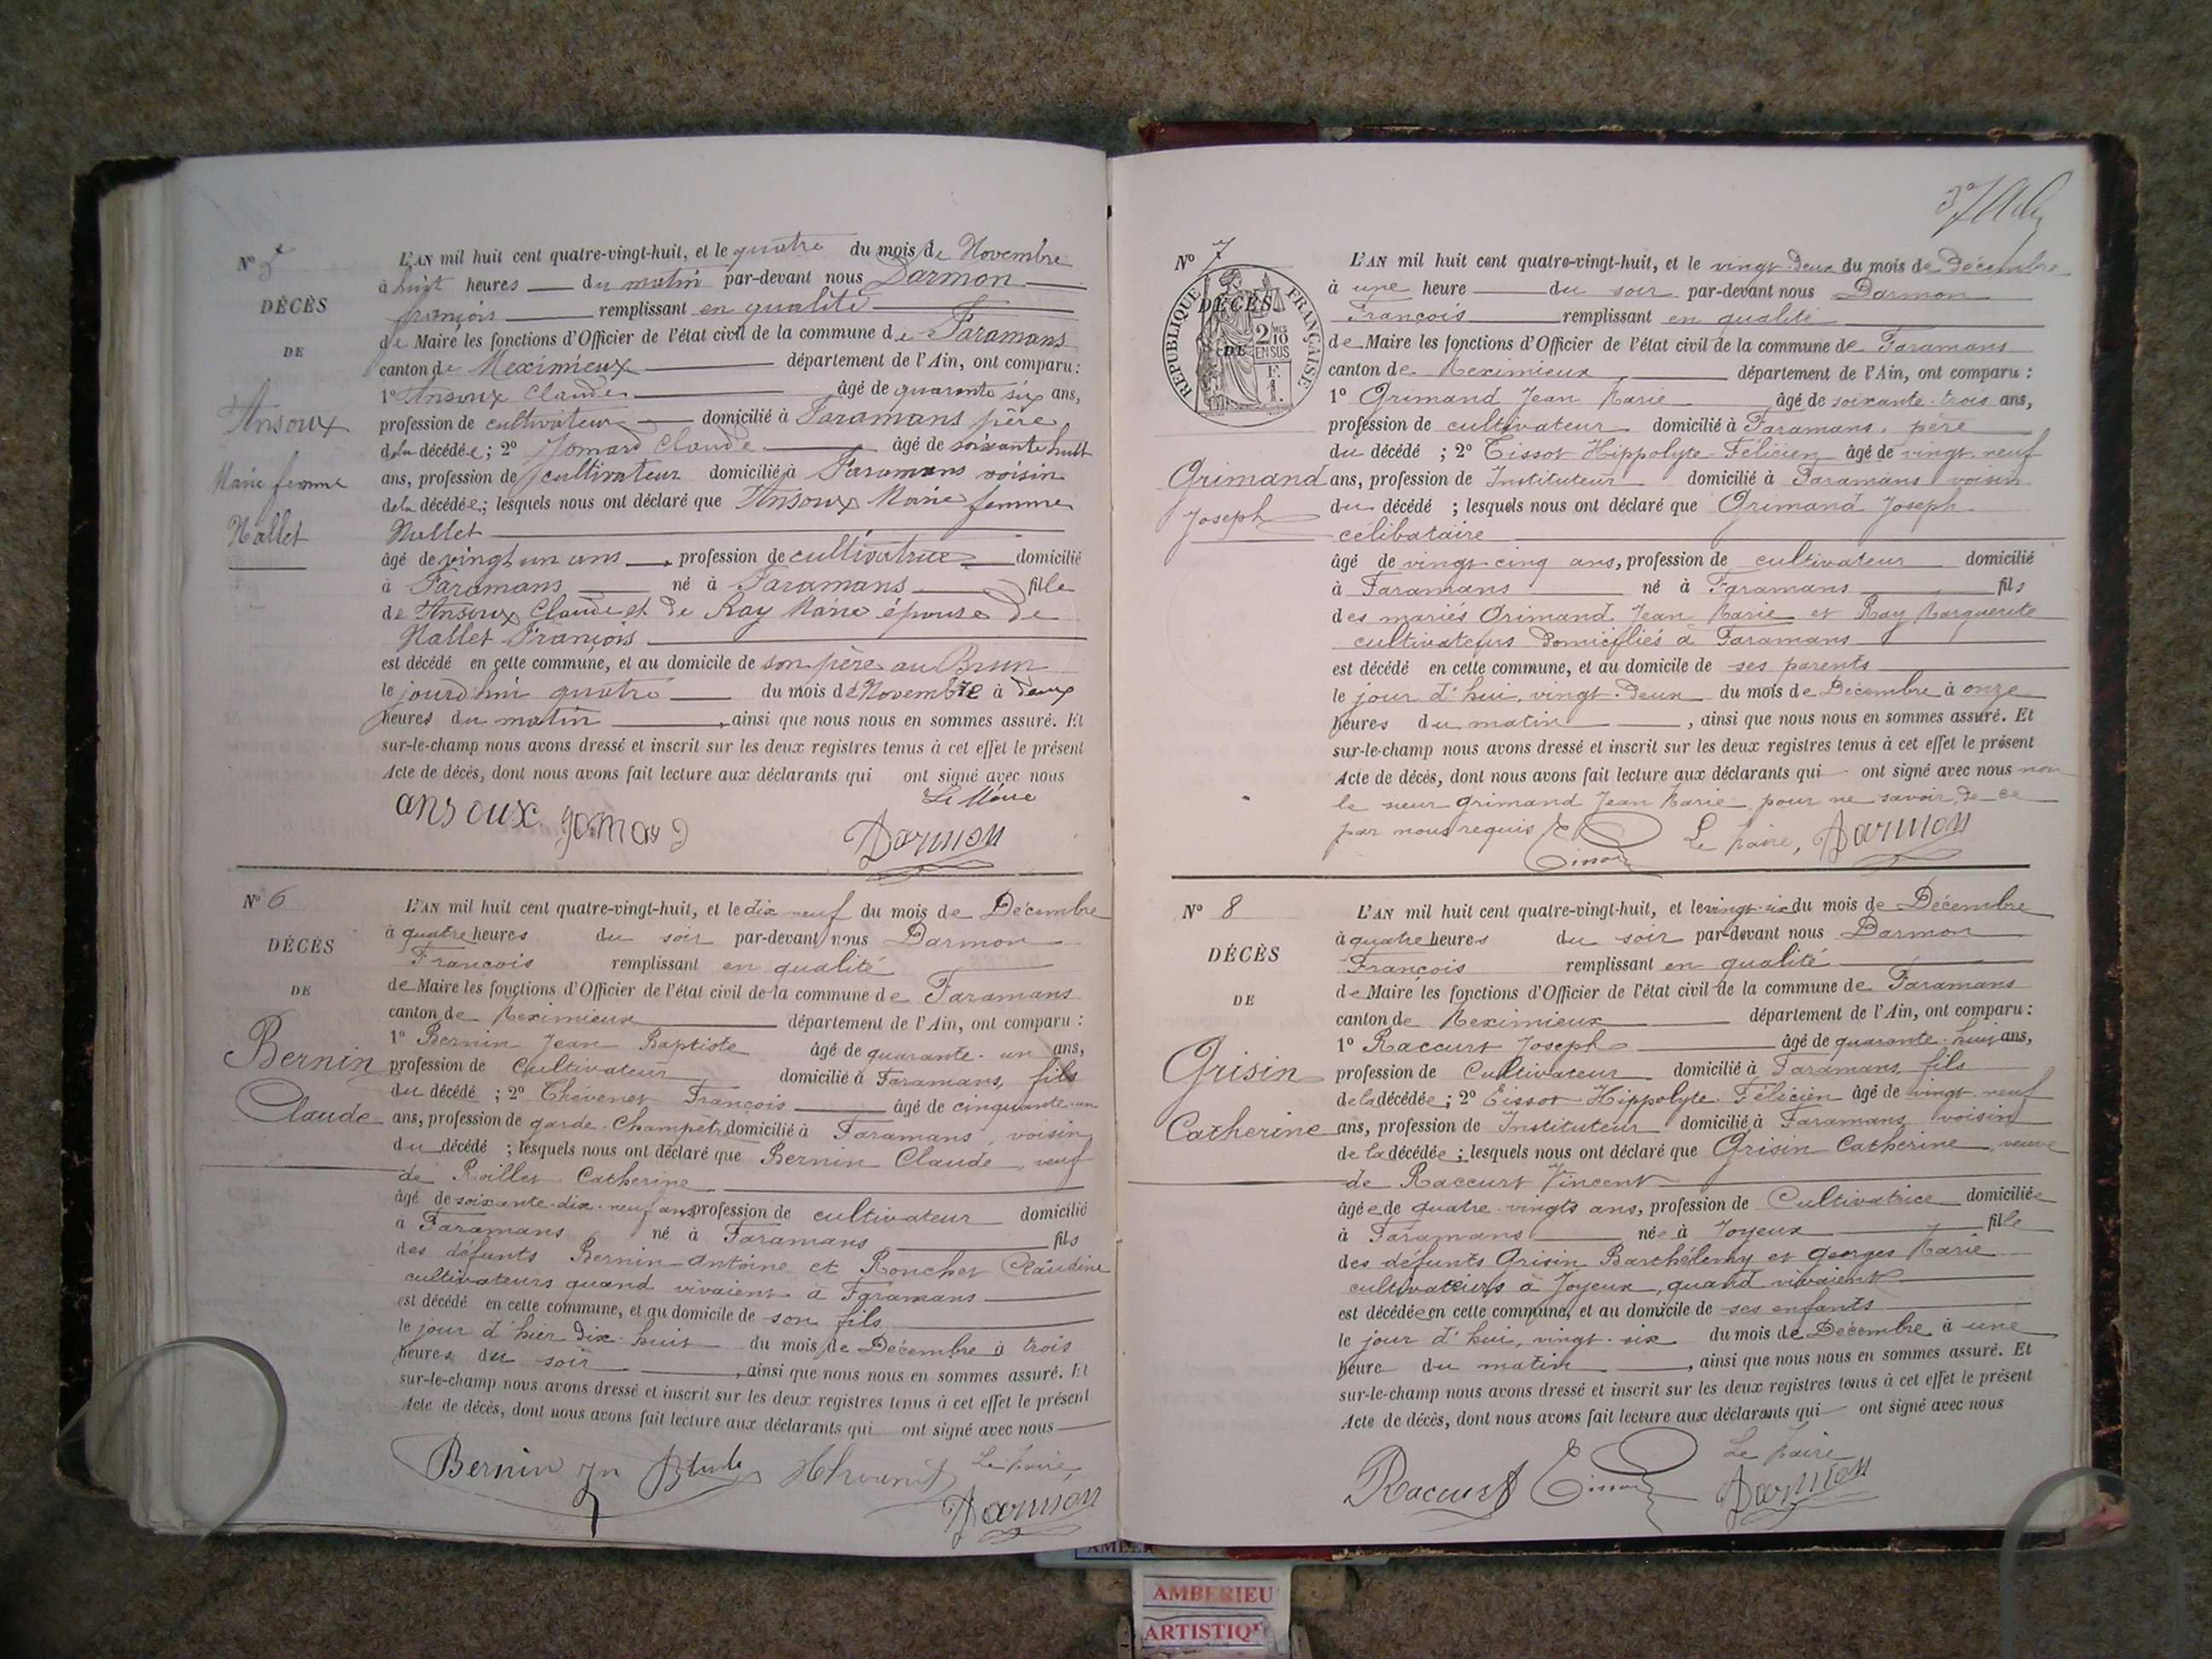 N° 5
DÉCÈS
DE
Ansoux
Marie femme
Nallet
L'AN mil huit cent quatre-vingt-huit, et le quatre du mois de Novembre
à huit heures du matin par-devant nous Darmon
françois remplissant en qualité
de Maire les fonctions d'Officier de l'état civil de la commune de Faramans
canton de Meximieux département de l'Ain, ont comparu :
1° Ansoux Claude âgé de quarante six ans,
profession de cultivateur domicilié à Faramans père
de la décédée ; 2° Jomard Claude âgé de soixante huit
ans, profession de cultivateur domicilié à Faramans voisin
de la décédée ; lesquels nous ont déclaré que Ansoux Marie femme
Nallet
âgé de vingt un ans, profession de cultivatrice domicilié
à Faramans né à Faramans fille
de Ansoux Claude et de Ray Marie épouse de
Nallet François
est décédé en cette commune, et au domicile de son père au Brun
le jourd'hui quatre du mois de Novembre à deux
heures du matin, ainsi que nous nous en sommes assuré. Et
sur-le-champ nous avons dressé et inscrit sur les deux registres tenus à cet effet le présent
Acte de décès, dont nous avons fait lecture aux déclarants qui ont signé avec nous
Le Maire
ansoux jomard Darmon
N° 6
DÉCÈS
DE
Bernin
Claude
L'AN mil huit cent quatre-vingt-huit, et le dix neuf du mois de Décembre
à quatre heures du soir par-devant nous Darmon
François remplissant en qualité
de Maire les fonctions d'Officier de l'état civil de la commune de Faramans
canton de Meximieux département de l'Ain, ont comparu :
1° Bernin Jean Baptiste âgé de quarante-un ans,
profession de Cultivateur domicilié à Faramans, fils
du décédé ; 2° Thévenet François âgé de cinquante-un
ans, profession de garde-Champêtre domicilié à Faramans, voisin
du décédé ; lesquels nous ont déclaré que Bernin Claude, veuf
de Roillet Catherine
âgé de soixante-dix-neuf ans, profession de cultivateur domicilié
à Faramans né à Faramans fils
des défunts Bernin Antoine et Ronchet Claudine
cultivateurs quand vivaient à Faramans
est décédé en cette commune, et au domicile de son fils
le jour d'hier dix-huit du mois de Décembre à trois
heures du soir, ainsi que nous nous en sommes assuré. Et
sur-le-champ nous avons dressé et inscrit sur les deux registres tenus à cet effet le présent
Acte de décès, dont nous avons fait lecture aux déclarants qui ont signé avec nous
Le Maire,
Bernin Jn Darmon
N° 7
RÉPUBLIQUE FRANÇAISE
2/10 EN SUS
F. 1.
DÉCÈS
DE
Grimand
Joseph
L'AN mil huit cent quatre-vingt-huit, et le vingt-deux du mois de Décembre
à une heure du soir par-devant nous Darmon
François remplissant en qualité
de Maire les fonctions d'Officier de l'état civil de la commune de Faramans
canton de Meximieux département de l'Ain, ont comparu :
1° Grimand Jean Marie âgé de soixante-trois ans,
profession de cultivateur domicilié à Faramans, père
du décédé ; 2° Tissot Hippolyte-Félicien âgé de vingt-neuf
ans, profession de Instituteur domicilié à Faramans voisin
du décédé ; lesquels nous ont déclaré que Grimand Joseph
célibataire
âgé de vingt-cinq ans, profession de cultivateur domicilié
à Faramans né à Faramans fils
des mariés Grimand Jean Marie et Ray Marguerite
cultivateurs domiciliés à Faramans
est décédé en cette commune, et au domicile de ses parents
le jour d'hui, vingt-deux du mois de Décembre à onze
heures du matin, ainsi que nous nous en sommes assuré. Et
sur-le-champ nous avons dressé et inscrit sur les deux registres tenus à cet effet le présent
Acte de décès, dont nous avons fait lecture aux déclarants qui ont signé avec nous non
le sieur Grimand Jean Marie pour ne savoir, de ce
par nous requis
Tissot Le Maire, Darmon
N° 8
DÉCÈS
DE
Grisin
Catherine
L'AN mil huit cent quatre-vingt-huit, et le vingt-six du mois de Décembre
à quatre heures du soir par-devant nous Darmon
François remplissant en qualité
de Maire les fonctions d'Officier de l'état civil de la commune de Faramans
canton de Meximieux département de l'Ain, ont comparu :
1° Raccurt Joseph âgé de quarante-huit ans,
profession de Cultivateur domicilié à Faramans, fils
de la décédée ; 2° Tissot Hippolyte-Félicien âgé de vingt-neuf
ans, profession de Instituteur domicilié à Faramans voisin
de la décédée ; lesquels nous ont déclaré que Grisin Catherine, veuve
de Raccurt Vincent
âgée de quatre-vingts ans, profession de Cultivatrice domiciliée
à Faramans née à Joyeux fille
des défunts Grisin Barthélemy et Georges Marie
cultivateurs à Joyeux, quand vivaient
est décédée en cette commune, et au domicile de ses enfants
le jour d'hui, vingt-six du mois de Décembre à une
heure du matin, ainsi que nous nous en sommes assuré. Et
sur-le-champ nous avons dressé et inscrit sur les deux registres tenus à cet effet le présent
Acte de décès, dont nous avons fait lecture aux déclarants qui ont signé avec nous
Le Maire
Raccurt Tissot Darmon
AMBERIEU
ARTISTIQ